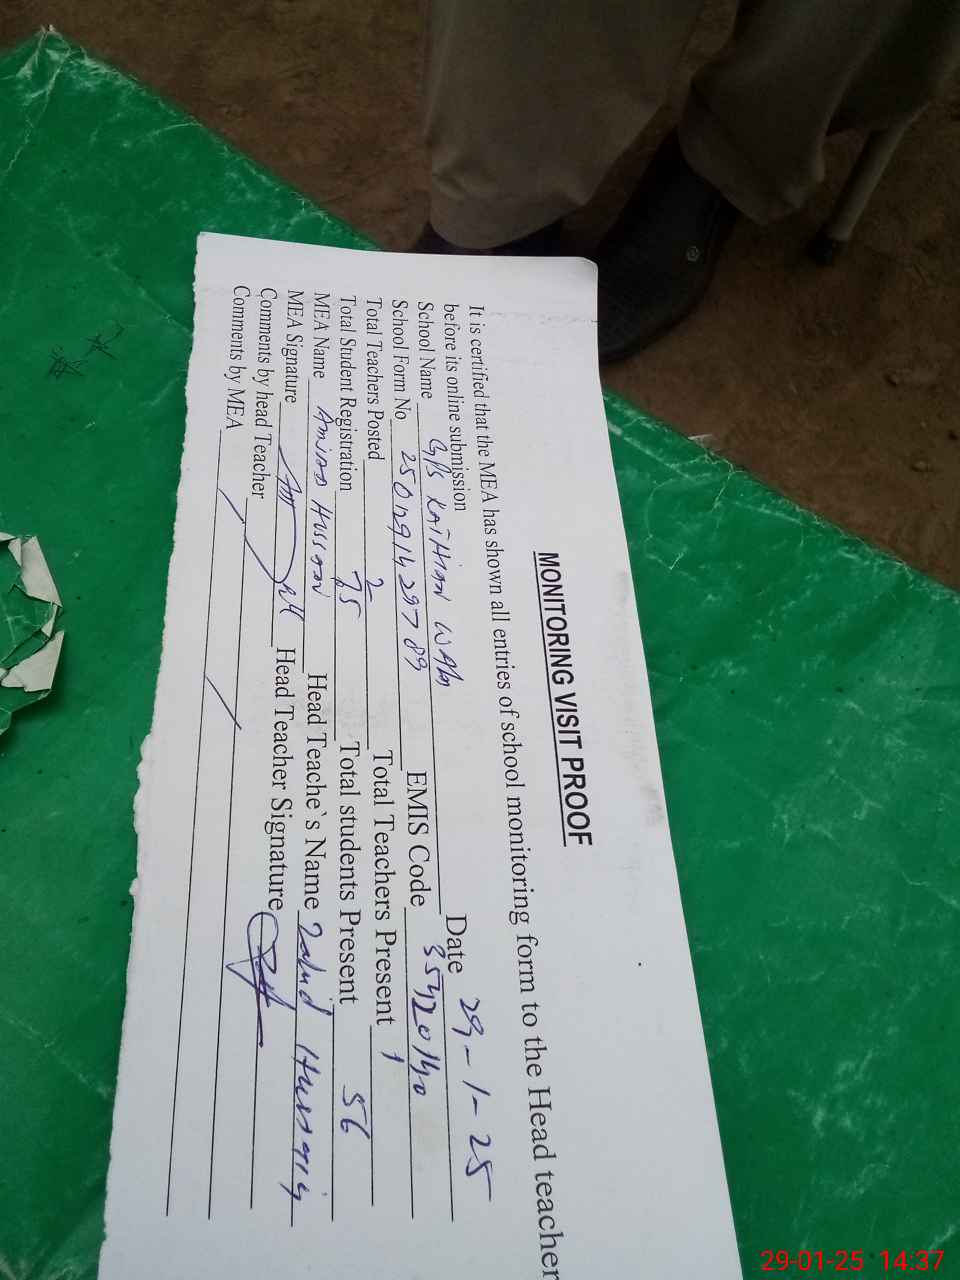 MONITORING VISIT PROOF
It is certified that the MEA has shown all entries of school monitoring form to the Head teacher
before its online submission Date 29-1-25
School Name G/PS KAiTHian WAla EMIS Code 35420140
School Form No 25012914297 89 Total Teachers Present 1
Total Teachers Posted 2 Total students Present 56
Total Student Registration 75 Head Teache`s Name Hussain
MEA Name Amjad Hussain Head Teacher Signature
MEA Signature
Comments by head Teacher
Comments by MEA
29-01-25 14:37